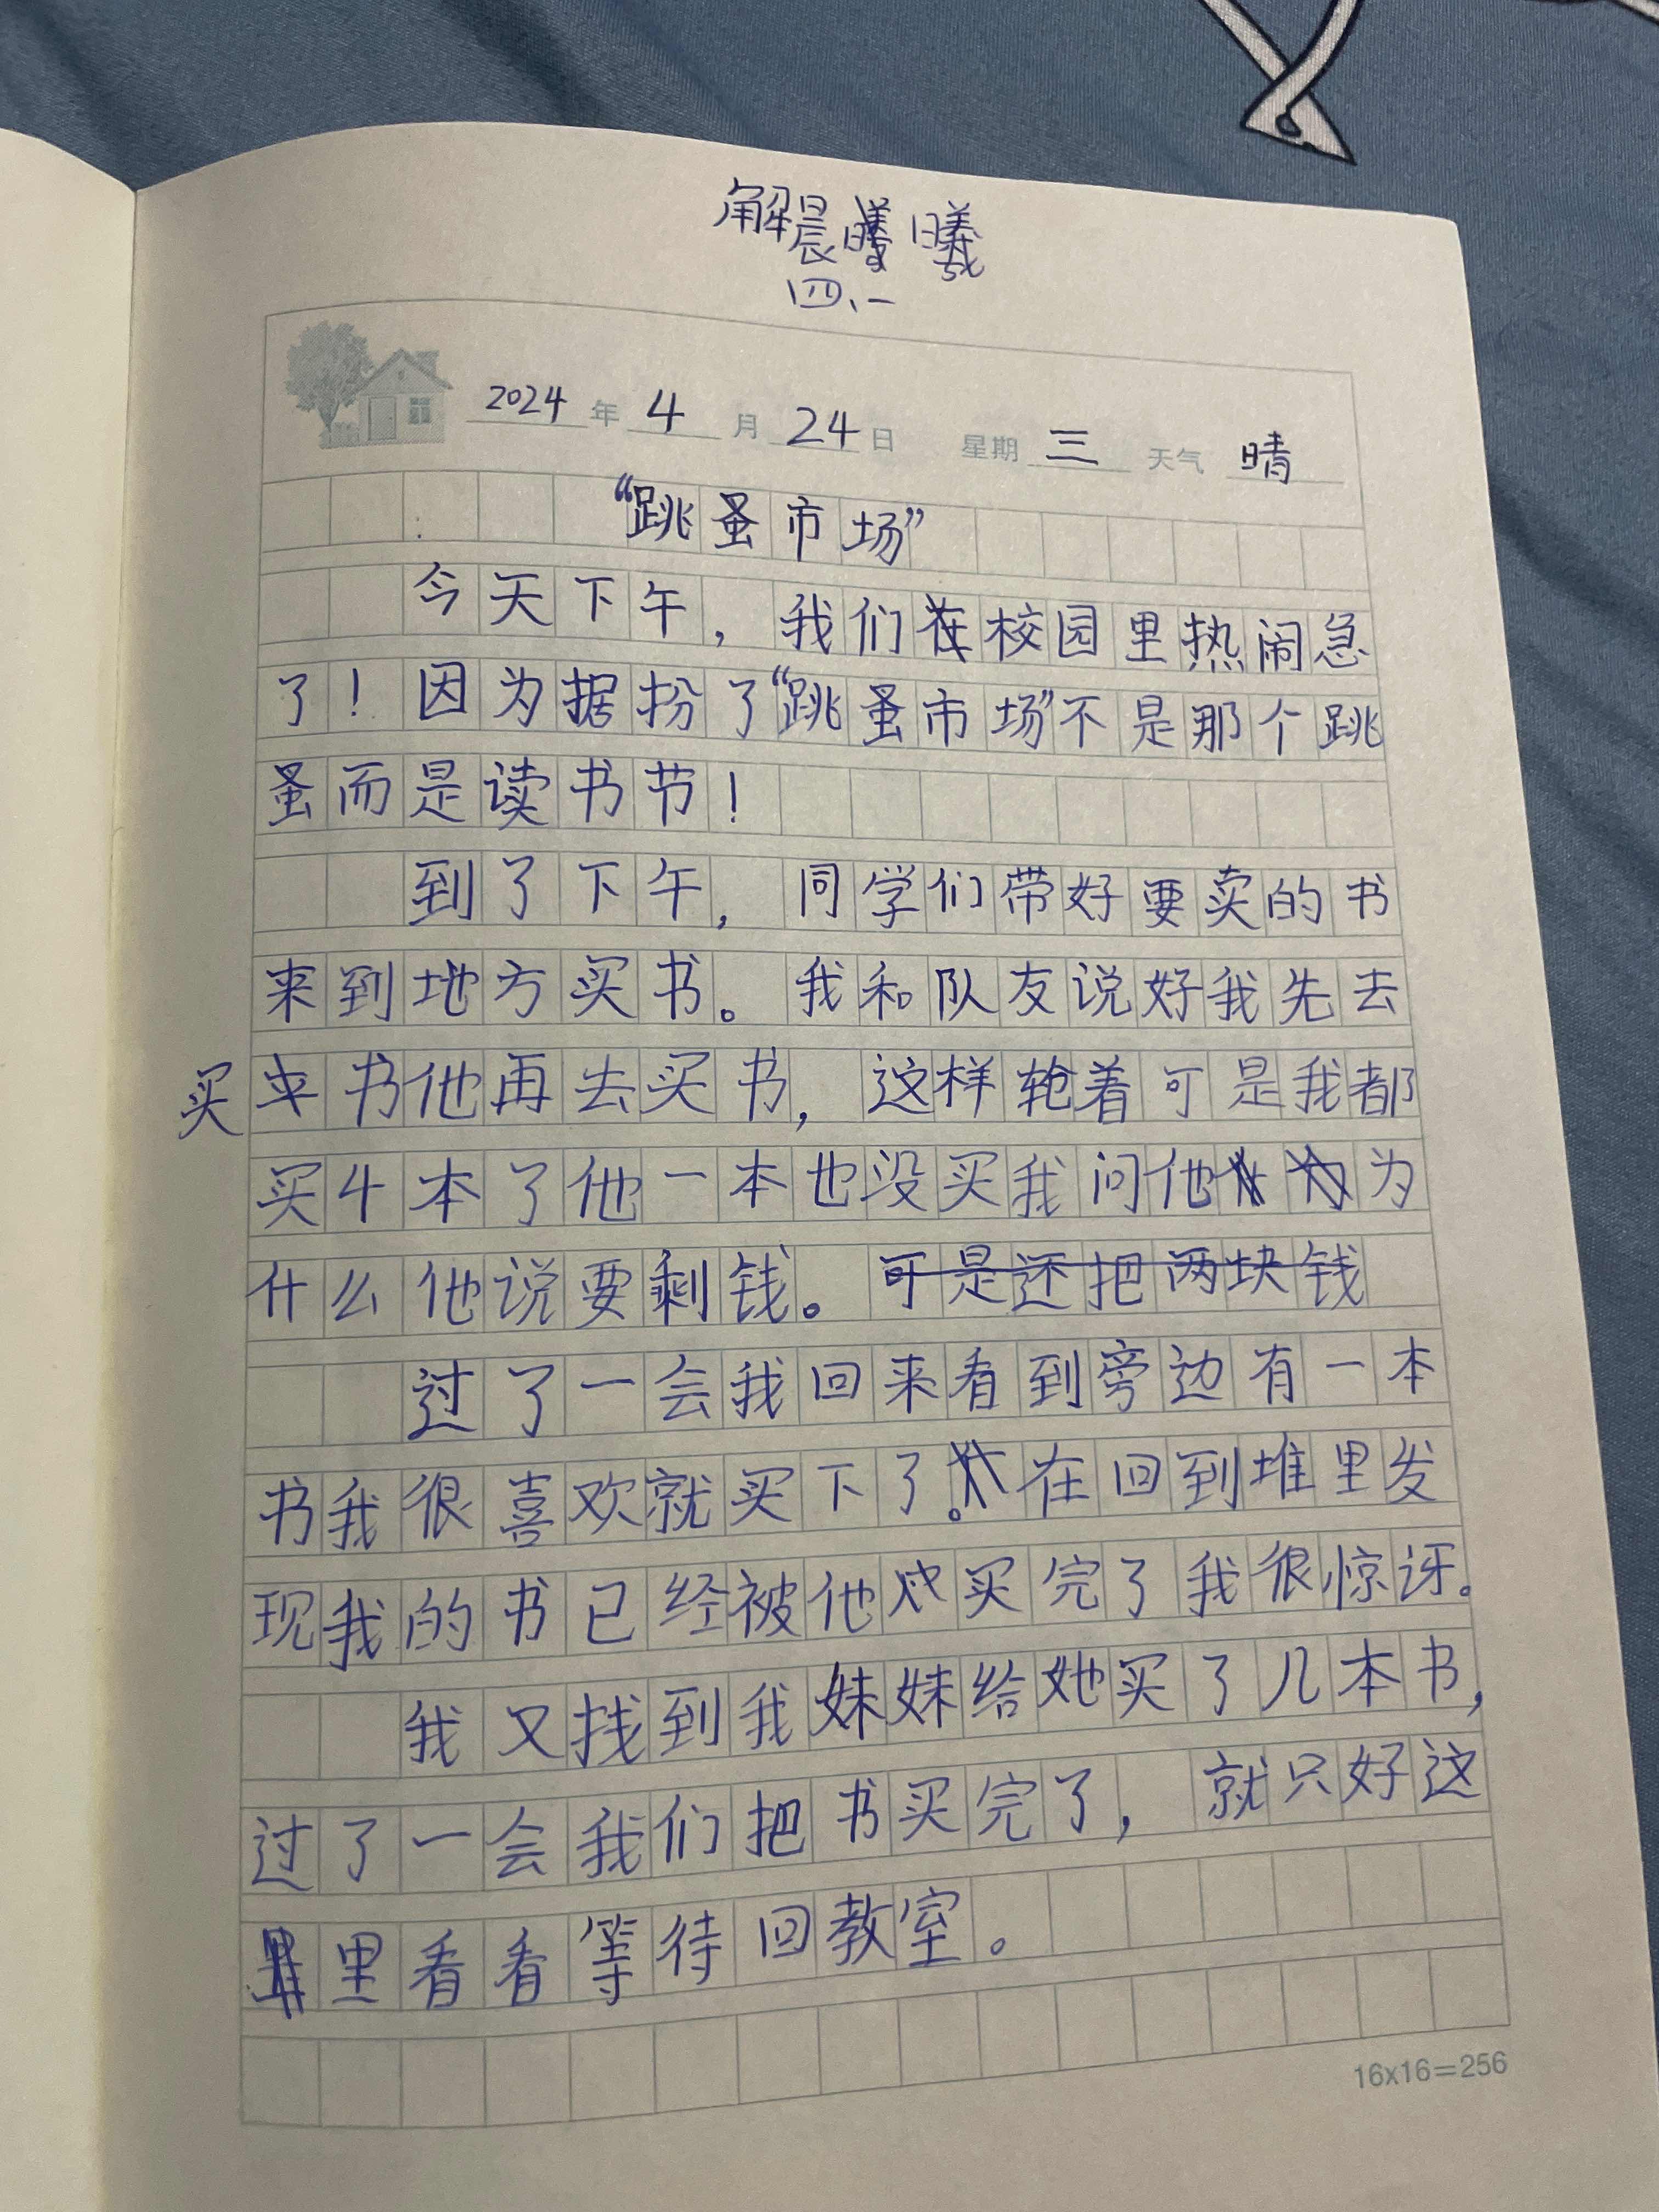 解晨曦
四、一
2024年4月24日 星期三 天气晴
“跳蚤市场”
今天下午，我们在校园里热闹急
了！因为据扮了“跳蚤市场”不是那个跳
蚤而是读书节！
到了下午，同学们带好要卖的书
来到地方买书。我和队友说好我先去
买书他再去买书，这样轮着可是我都
买4本了他一本也没买我问他为
什么他说要剩钱。可是还把两块钱
过了一会我回来看到旁边有一本
书我很喜欢就买下了。在回到堆里发
现我的书已经被他买完了我很惊讶。
我又找到我妹妹给她买了几本书，
过了一会我们把书买完了，就只好这
里看看等待回教室。
16x16=256